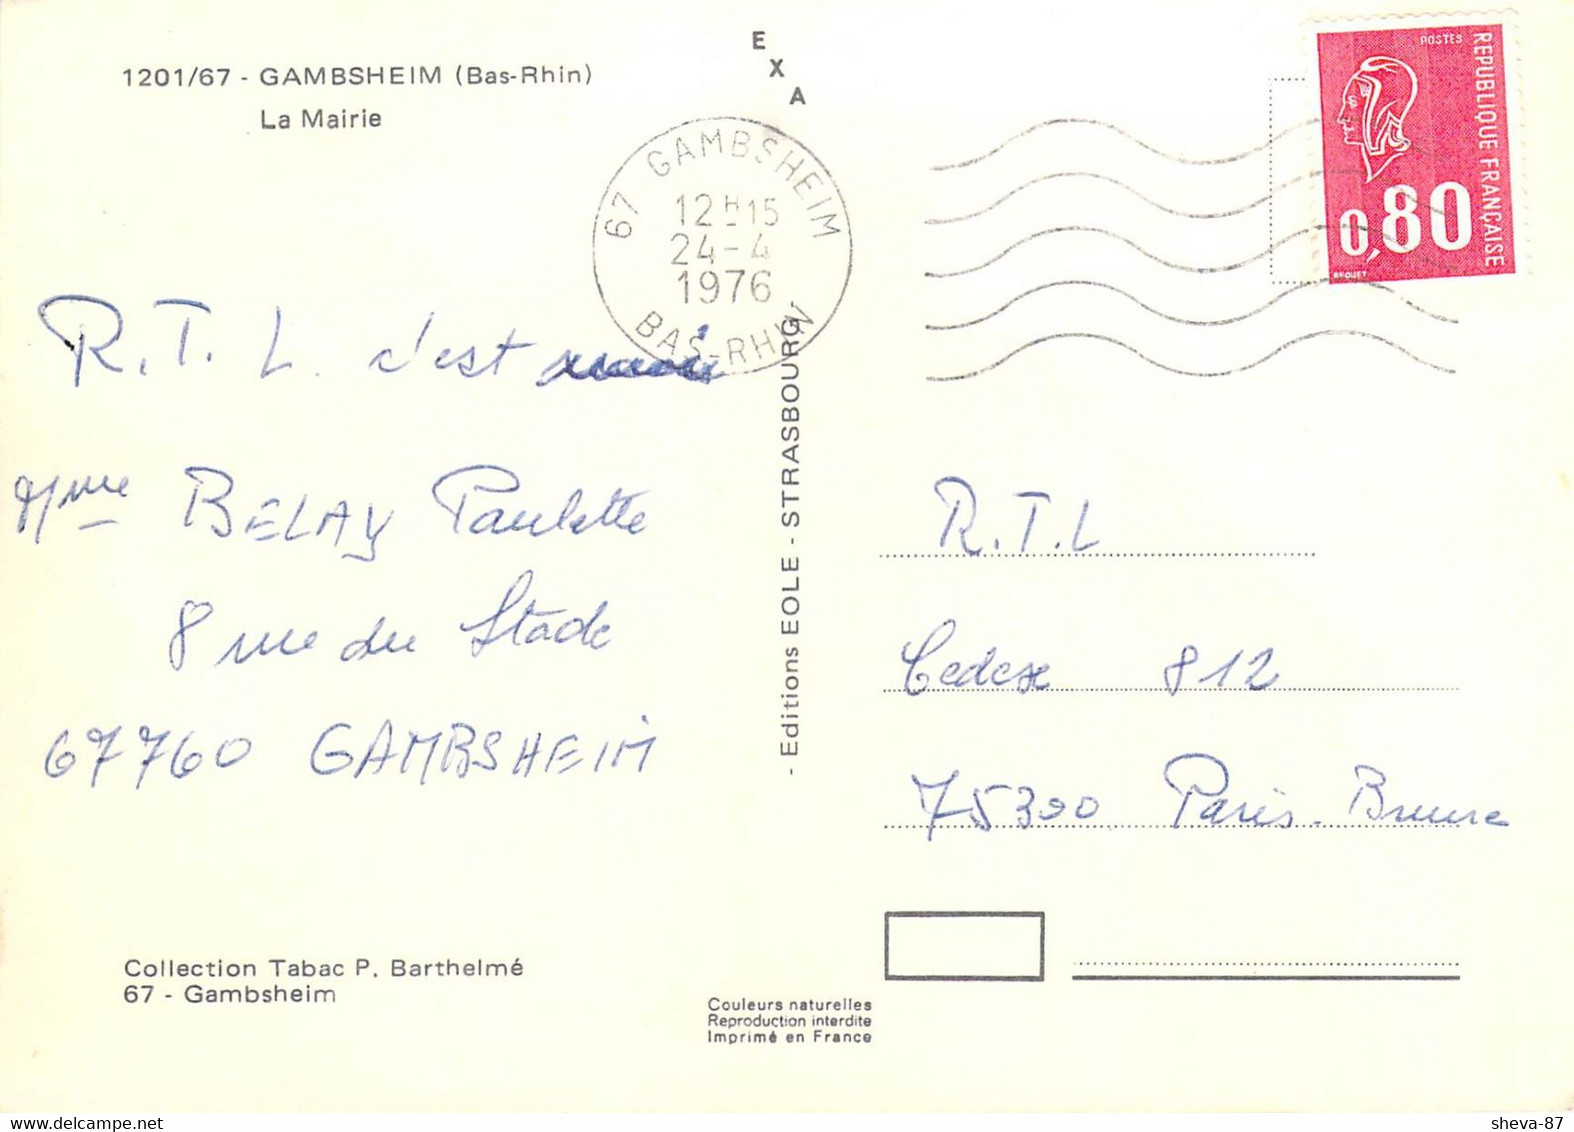 1201/67 - GAMBSHEIM (Bas-Rhin)
La Mairie
E
X
A
67 GAMBSHEIM
12H15
24-4
1976
BAS-RHIN
POSTES
REPUBLIQUE FRANÇAISE
0,80
BEQUET
R.T.L. c'est
Mme BELAY Paulette
8 rue du Stade
67760 GAMBSHEIM
- Editions EOLE - STRASBOURG
R.T.L
Cedex 812
75300 Paris. Brune
Collection Tabac P. Barthelmé
67 - Gambsheim
Couleurs naturelles
Reproduction interdite
Imprimé en France
sheva-87